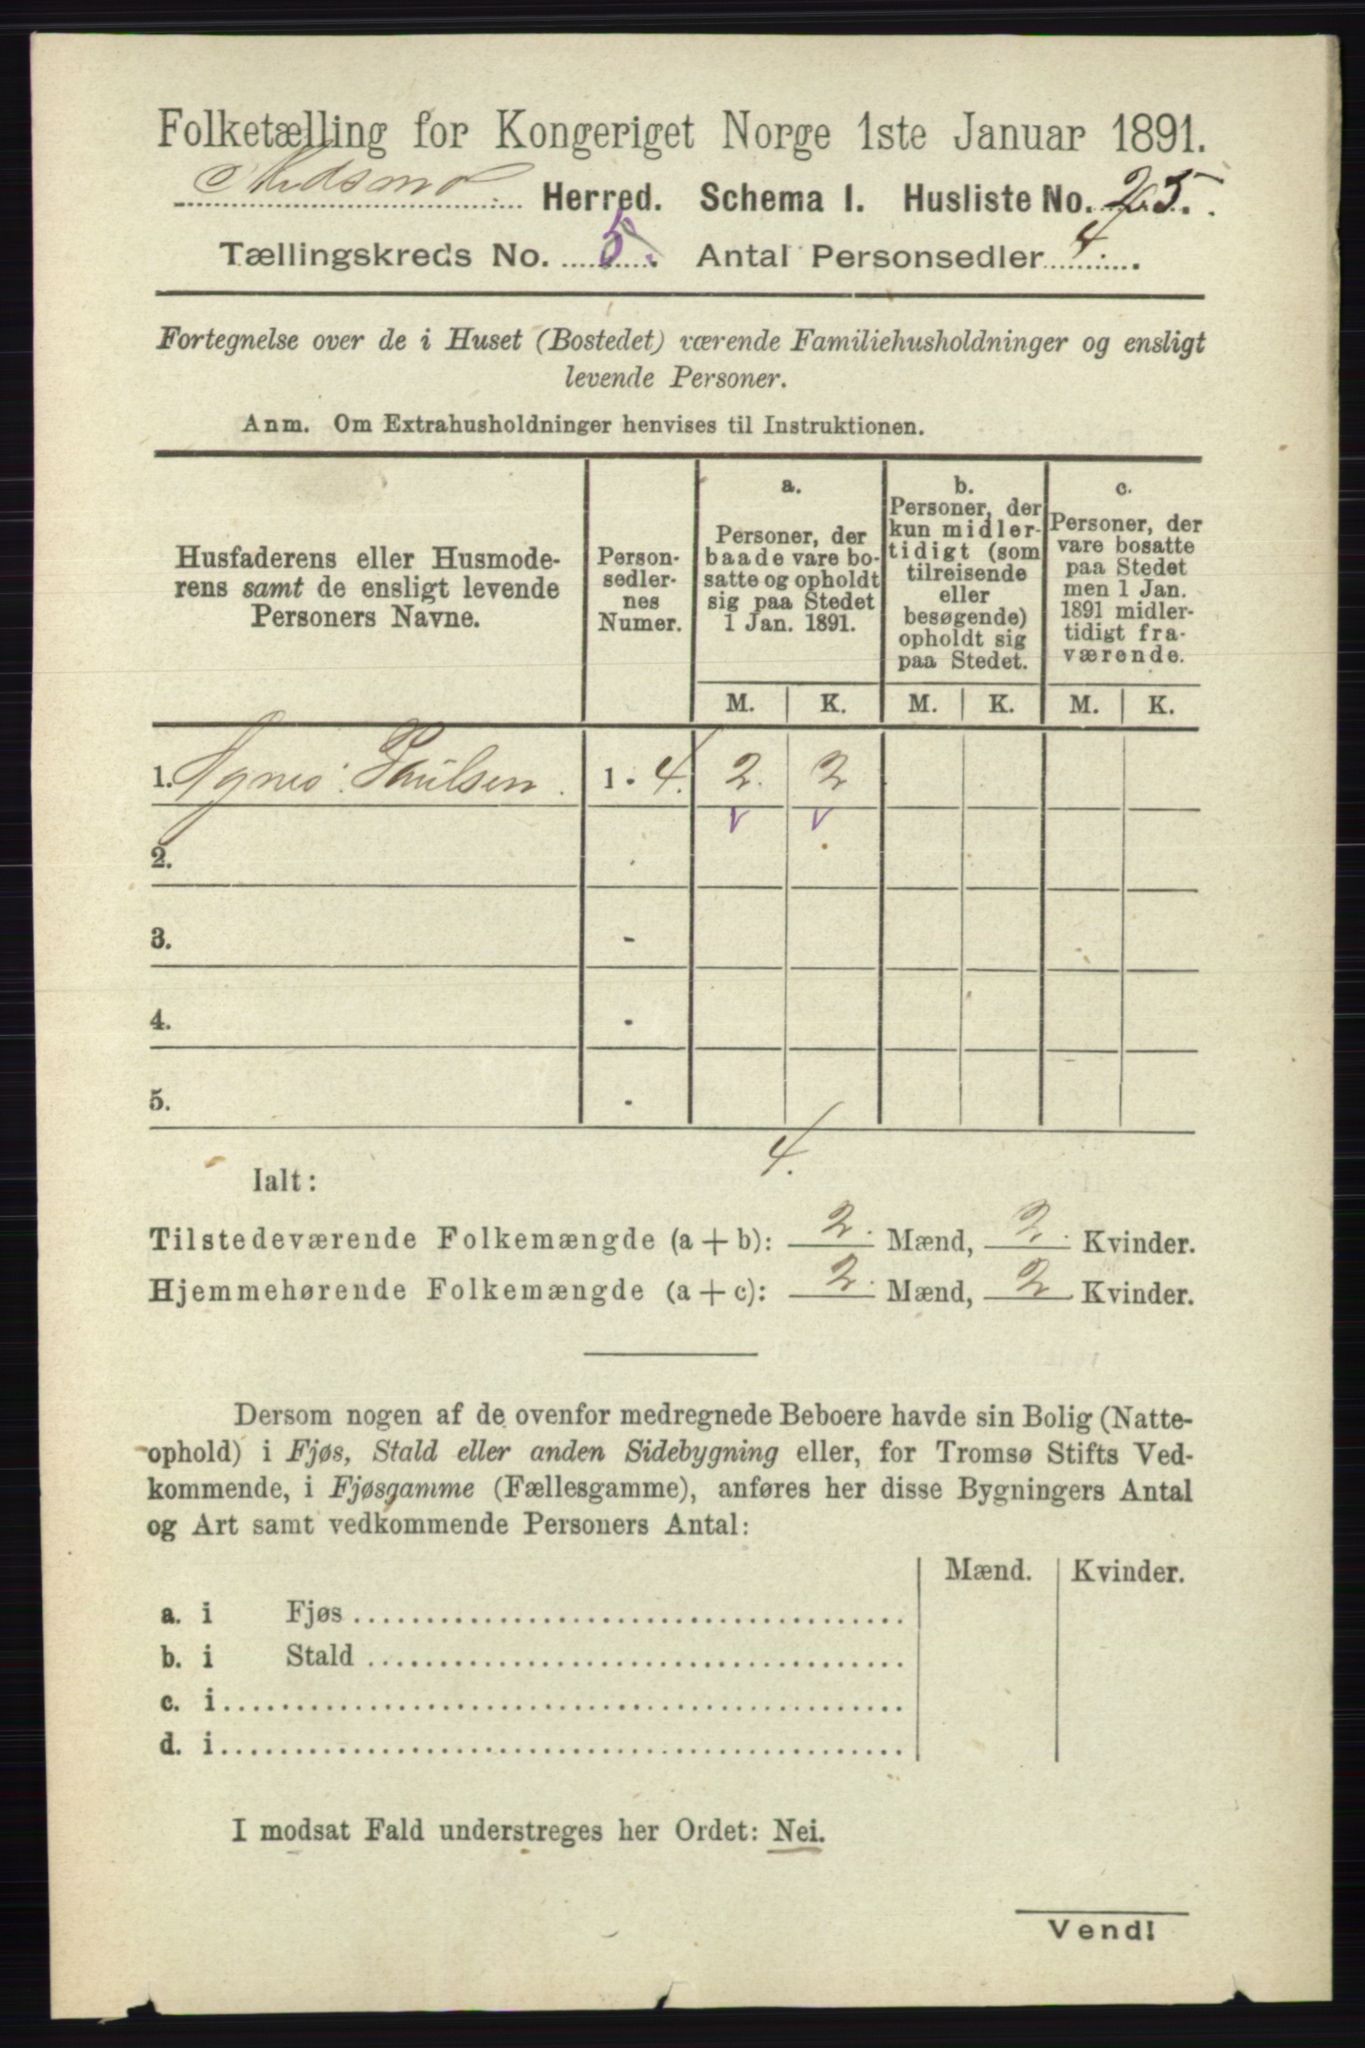 Folketælling for Kongeriget Norge 1ste Januar 1891.
Skedsmo Herred. Schema I. Husliste No. 25.
Tællingskreds No. 5. Antal Personsedler 4.
Fortegnelse over de i Huset (Bostedet) værende Familiehusholdninger og ensligt
levende Personer.
Anm. Om Extrahusholdninger henvises til Instruktionen.
Husfaderens eller Husmode-
rens samt de ensligt levende
Personers Navne.
Person-
sedler-
nes
Numer.
a.
Personer, der
baade vare bo-
satte og opholdt
sig paa Stedet
1 Jan. 1891.
b.
Personer, der
kun midler-
tidigt (som
tilreisende
eller
besøgende)
opholdt sig
paa Stedet.
c.
Personer, der
vare bosatte
paa Stedet
men 1 Jan.
1891 midler-
tidigt fra-
værende.
M. K. M. K. M. K.
1. Agnes Paulsen. 1 - 4. 2. 2
v v
2. -
3. -
4. -
5. -
4.
Ialt:
Tilstedeværende Folkemængde (a + b): 2. Mænd, 2. Kvinder.
Hjemmehørende Folkemængde (a + c): 2. Mænd, 2 Kvinder.
Dersom nogen af de ovenfor medregnede Beboere havde sin Bolig (Natte-
ophold) i Fjøs, Stald eller anden Sidebygning eller, for Tromsø Stifts Ved-
kommende, i Fjøsgamme (Fællesgamme), anføres her disse Bygningers Antal
og Art samt vedkommende Personers Antal:
Mænd. Kvinder.
a. i Fjøs
b. i Stald
c. i
d. i
I modsat Fald understreges her Ordet: Nei.
Vend!